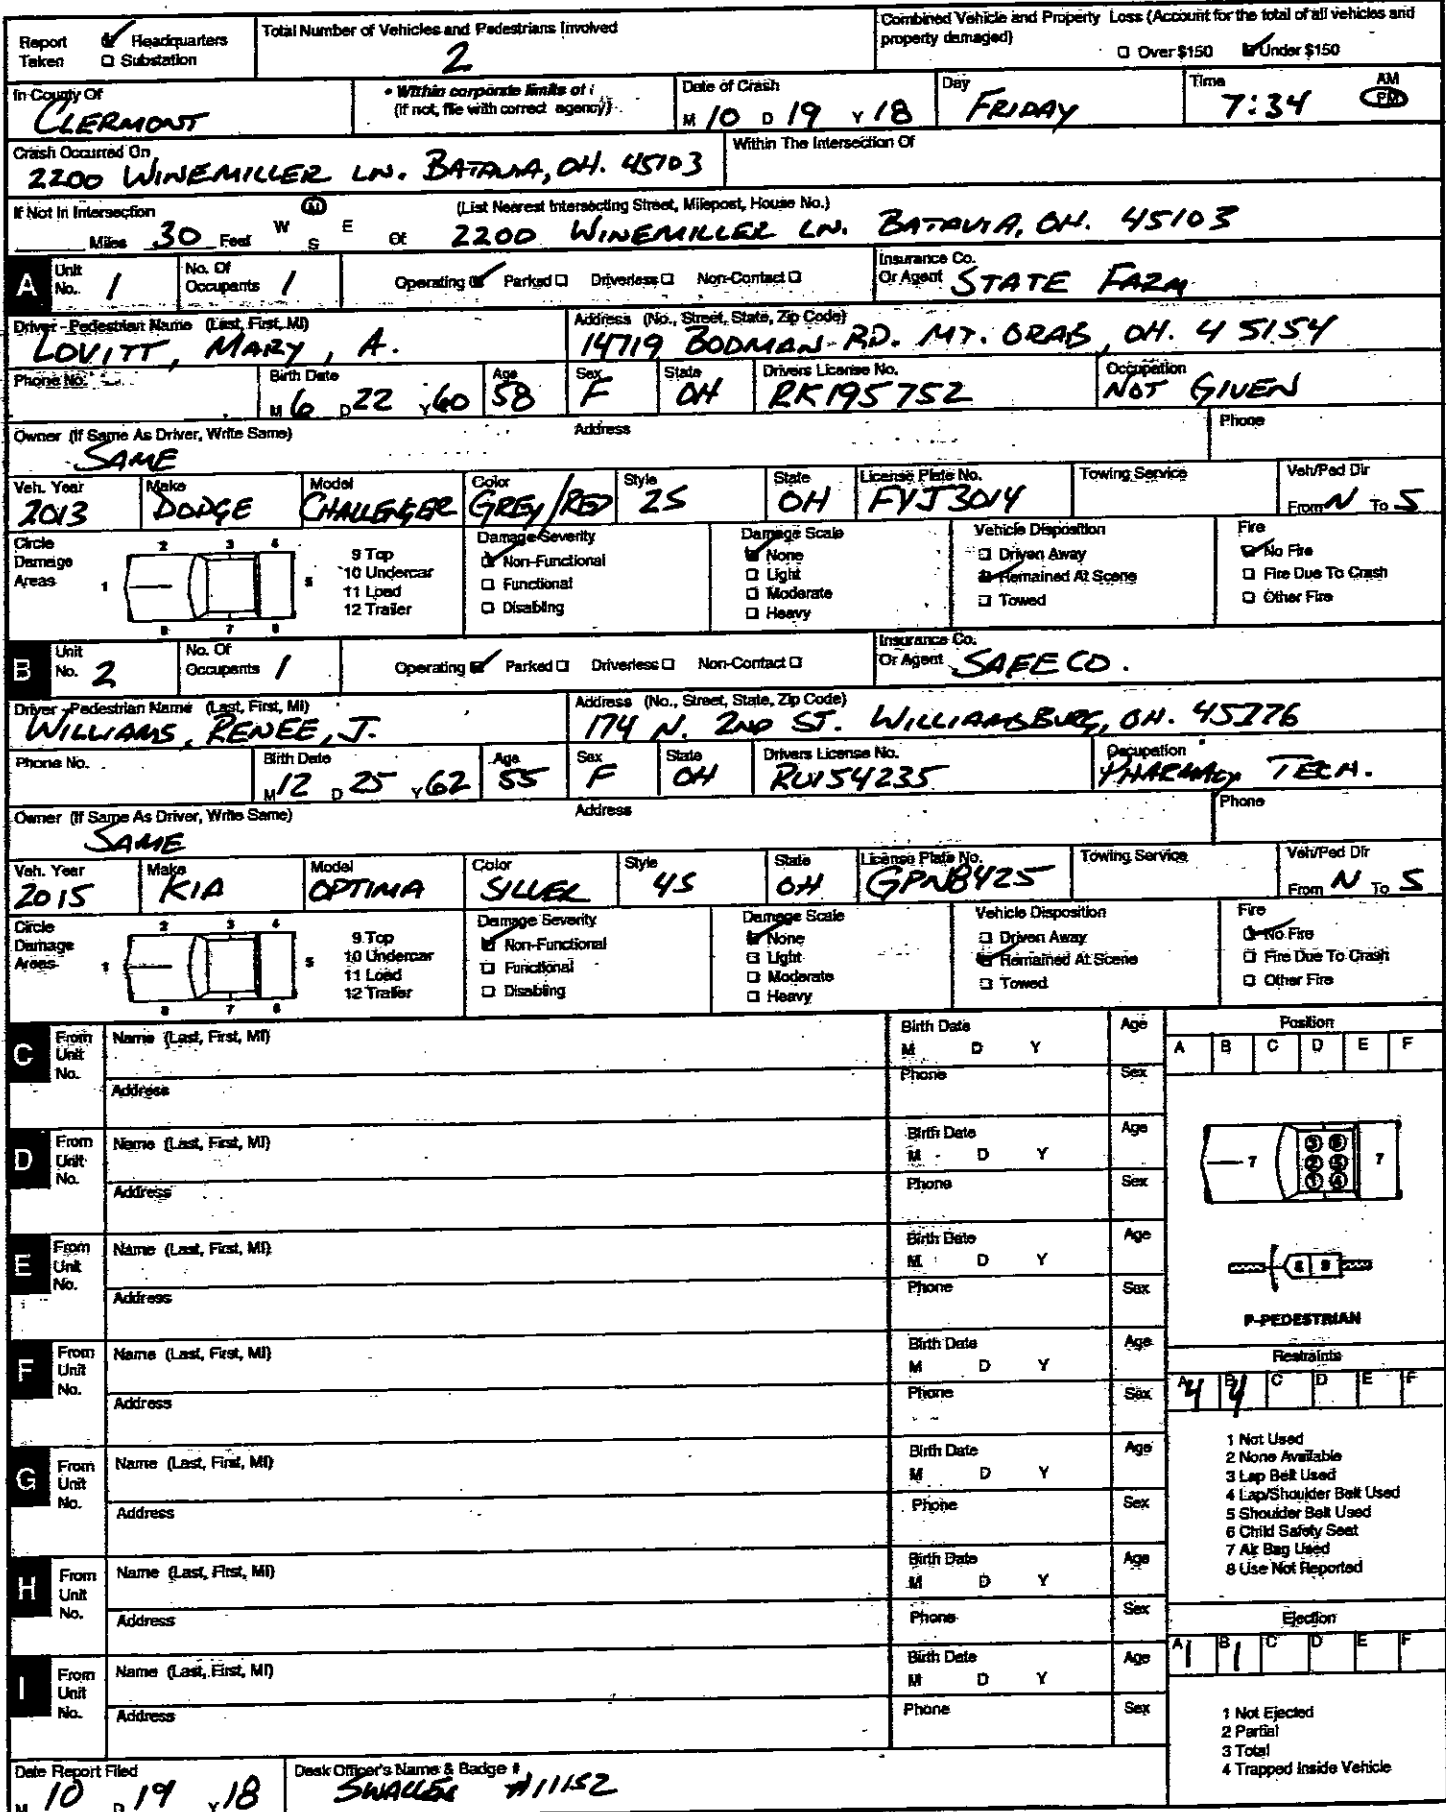 Report Taken ☑ Headquarters ☐ Substation
Total Number of Vehicles and Pedestrians Involved 2
Combined Vehicle and Property Loss (Account for the total of all vehicles and property damaged) ☐ Over $150 ☑ Under $150
In County Of CLERMONT
• Within corporate limits of (If not, file with correct agency)
Date of Crash M 10 D 19 Y 18
Day FRIDAY
Time 7:34 AM PM
Crash Occurred On 2200 WINEMILLER LN. BATAVIA, OH. 45103
Within The Intersection Of
If Not In Intersection
(List Nearest Intersecting Street, Milepost, House No.)
Miles 30 Feet W N S E Of 2200 WINEMILLER LN. BATAVIA, OH. 45103
A Unit No. 1 No. Of Occupants 1 Operating ☑ Parked ☐ Driverless ☐ Non-Contact ☐ Insurance Co. Or Agent STATE FARM
Driver - Pedestrian Name (Last, First, MI) LOVITT, MARY, A.
Address (No., Street, State, Zip Code) 14719 BODMAN RD. MT. ORAB, OH. 45154
Phone No.
Birth Date M 6 D 22 Y 60
Age 58
Sex F
State OH
Drivers License No. RK195752
Occupation NOT GIVEN
Owner (If Same As Driver, Write Same) SAME
Address
Phone
Veh. Year 2013
Make DODGE
Model CHALLENGER
Color GREY/RED
Style 2S
State OH
License Plate No. FYJ3014
Towing Service
Veh/Ped Dir From N To S
Circle Damage Areas
1 2 3 4 5 6 7 8
9 Top
10 Undercar
11 Load
12 Trailer
Damage Severity ☑ Non-Functional ☐ Functional ☐ Disabling
Damage Scale ☑ None ☐ Light ☐ Moderate ☐ Heavy
Vehicle Disposition ☐ Driven Away ☑ Remained At Scene ☐ Towed
Fire ☑ No Fire ☐ Fire Due To Crash ☐ Other Fire
B Unit No. 2 No. Of Occupants 1 Operating ☑ Parked ☐ Driverless ☐ Non-Contact ☐ Insurance Co. Or Agent SAFECO.
Driver - Pedestrian Name (Last, First, MI) WILLIAMS, RENEE, J.
Address (No., Street, State, Zip Code) 174 N. 2ND ST. WILLIAMSBURG, OH. 45176
Phone No.
Birth Date M 12 D 25 Y 62
Age 55
Sex F
State OH
Drivers License No.
Occupation PHARMACY TECH.
Owner (If Same As Driver, Write Same) SAME
Address
Phone
Veh. Year 2015
Make KIA
Model OPTIMA
Color SILVER
Style 4S
State OH
License Plate No. GPN8425
Towing Service
Veh/Ped Dir From N To S
Circle Damage Areas
1 2 3 4 5 6 7 8
9 Top
10 Undercar
11 Load
12 Trailer
Damage Severity ☑ Non-Functional ☐ Functional ☐ Disabling
Damage Scale ☑ None ☐ Light ☐ Moderate ☐ Heavy
Vehicle Disposition ☐ Driven Away ☑ Remained At Scene ☐ Towed
Fire ☑ No Fire ☐ Fire Due To Crash ☐ Other Fire
C From Unit No. Name (Last, First, MI) Birth Date M D Y Age
Address Phone Sex
D From Unit No. Name (Last, First, MI) Birth Date M D Y Age
Address Phone Sex
E From Unit No. Name (Last, First, MI) Birth Date M D Y Age
Address Phone Sex
F From Unit No. Name (Last, First, MI) Birth Date M D Y Age
Address Phone Sex
G From Unit No. Name (Last, First, MI) Birth Date M D Y Age
Address Phone Sex
H From Unit No. Name (Last, First, MI) Birth Date M D Y Age
Address Phone Sex
I From Unit No. Name (Last, First, MI) Birth Date M D Y Age
Address Phone Sex
Position
A B C D E F
7 3 6 2 5 1 4 7
8 9
P-PEDESTRIAN
Restraints
A 4 B 4 C D E F
1 Not Used
2 None Available
3 Lap Belt Used
4 Lap/Shoulder Belt Used
5 Shoulder Belt Used
6 Child Safety Seat
7 Air Bag Used
8 Use Not Reported
Ejection
A 1 B 1 C D E F
1 Not Ejected
2 Partial
3 Total
4 Trapped Inside Vehicle
Date Report Filed M 10 D 19 Y 18
Desk Officer's Name & Badge # SWALLEN #11152